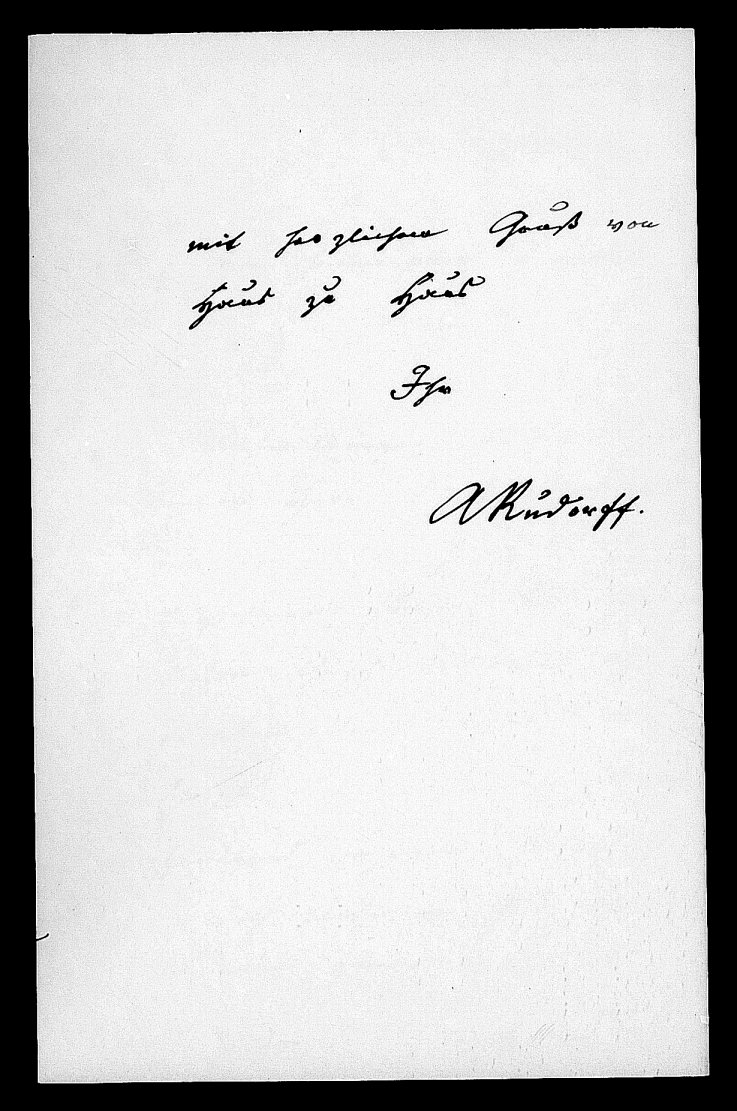 mit herzlichem Gruß von
Haus zu Haus
Ihr
ARudorff.